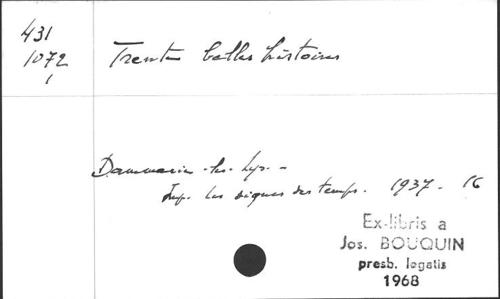 431
1072
1
Trente belles histoires
Dammarie-les-Lys. -
Imp. les signes des temps. 1937. 16
Ex-libris a
Jos. BOUQUIN
presb. legatis
1968